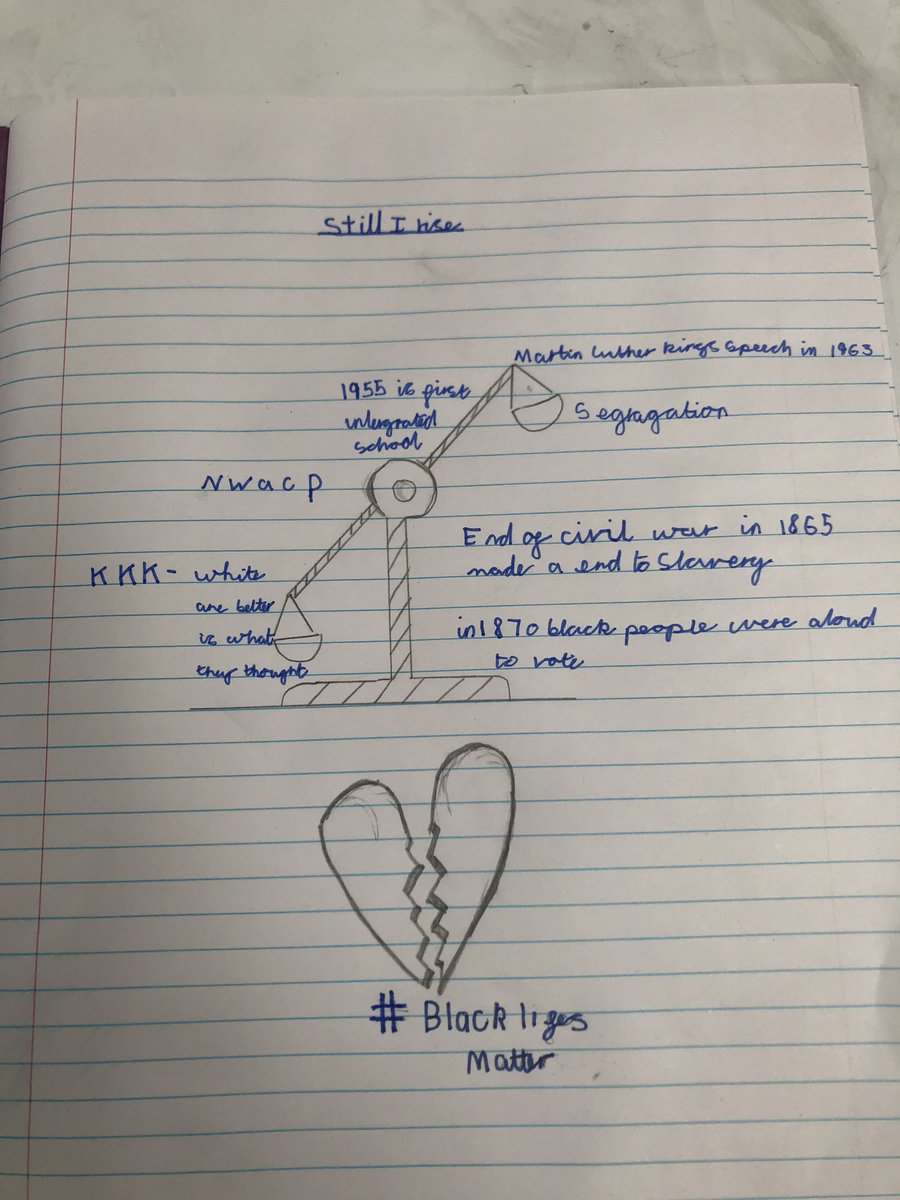 Still I rise
Martin Luther kings speech in 1963
1955 is first
intergrated
school
Segragation
N w a c p
End of civil war in 1865
made a end to Slavery
KKK - white
are better
is what
they thought
in 1870 black people were aloud
to vote
# Black lives
Matter